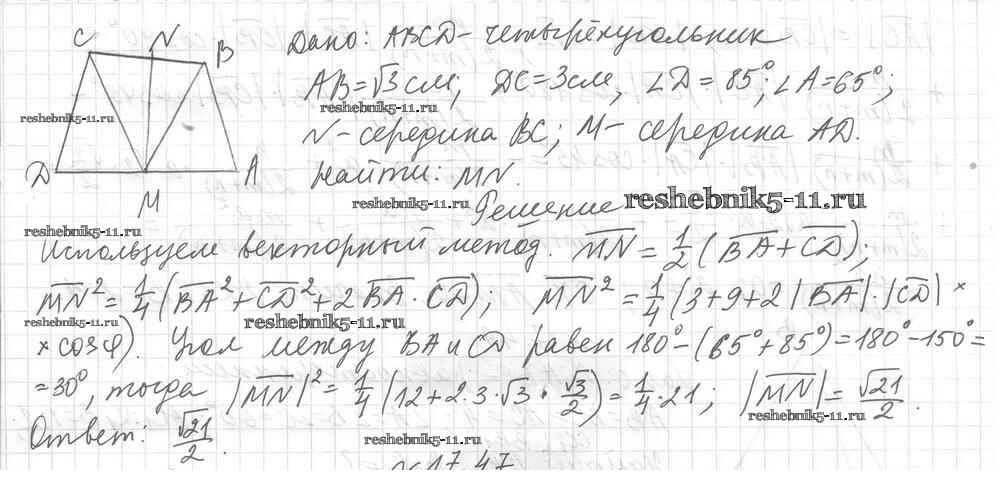 C N B
D M A
Дано: ABCD - четырёхугольник
AB = √3 см; DC = 3 см, ∠D = 85°; ∠A = 65°;
reshebnik5-11.ru
reshebnik5-11.ru
N - середина BC; M - середина AD.
Найти: MN.
reshebnik5-11.ru
reshebnik5-11.ru
Решение
reshebnik5-11.ru
Используем векторный метод. MN = 1/2 (BA + CD);
MN² = 1/4 (BA² + CD² + 2 BA · CD); MN² = 1/4 (3 + 9 + 2 |BA| · |CD| ×
reshebnik5-11.ru
reshebnik5-11.ru
× cos φ). Угол между BA и CD равен 180° - (65° + 85°) = 180° - 150° =
= 30°, тогда |MN|² = 1/4 (12 + 2 · 3 · √3 · √3/2) = 1/4 · 21; |MN| = √21/2.
reshebnik5-11.ru
Ответ: √21/2.
reshebnik5-11.ru
17.47